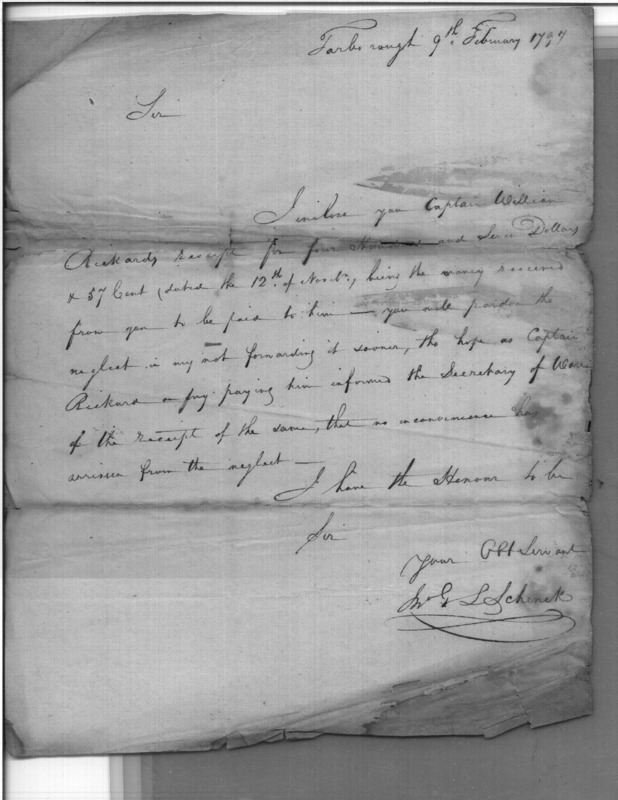 Tarborough 9th February 1797
Sir
I inclose you Captain William
Rickards receipt for four Hundred and Seven Dollars
& 57 Cent (dated the 12th of Novbr, being the money received
from you to be paid to him — you will pardon the
neglect in my not forwarding it sooner, tho hope as Captain
Rickard on my paying him informed the Secretary of Ware
of the receipt of the same, that no inconvenience has
arrisen from the neglect —
I have the Honour to be
Sir
Your Obt Servant
Jno G L Schenck